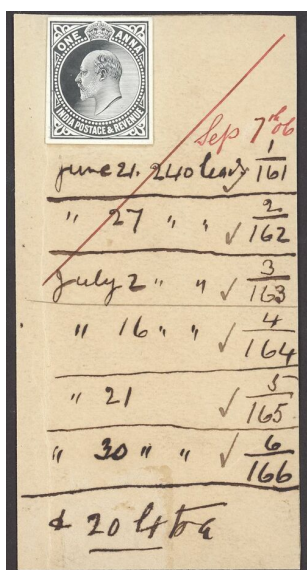 ONE ANNA
INDIA POSTAGE & REVENUE
Sep 7th 06
June 21. 240 1/161
" 27 " " ✓ 2/162
July 2 " " ✓ 3/163
" 16 " " ✓ 4/164
" 21 ✓ 5/165
" 30 " " ✓ 6/166
& 20